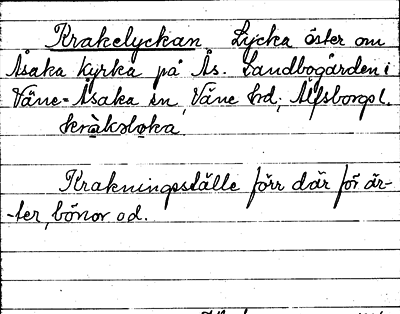 Krakelyckan Lycka öster om
Åsaka kyrka på Ås. Landbogården i
Väne-Åsaka sn, Väne hd, Älfsborgs l.
kràkəlo̥ka.
Krakningsställe förr där för är-
-ter, bönor od.